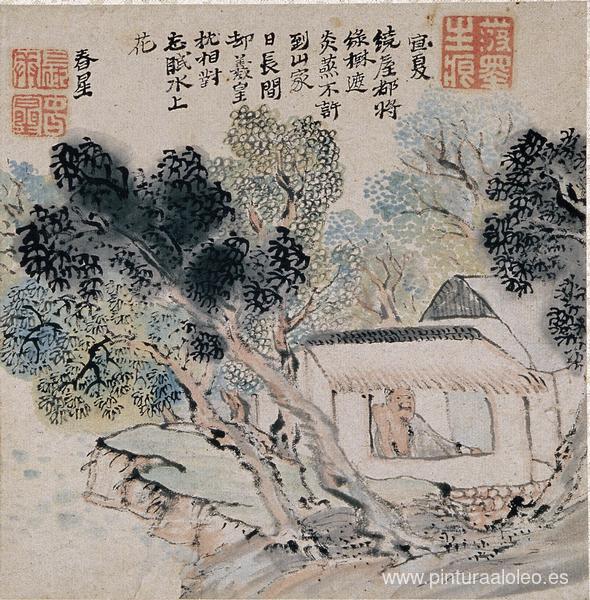 宜夏
繞屋都將
綠樹遮
炎蒸不許
到山家
日長間
却羲皇
枕相對
忘眠水上
花
春星
www.pinturaaloleo.es